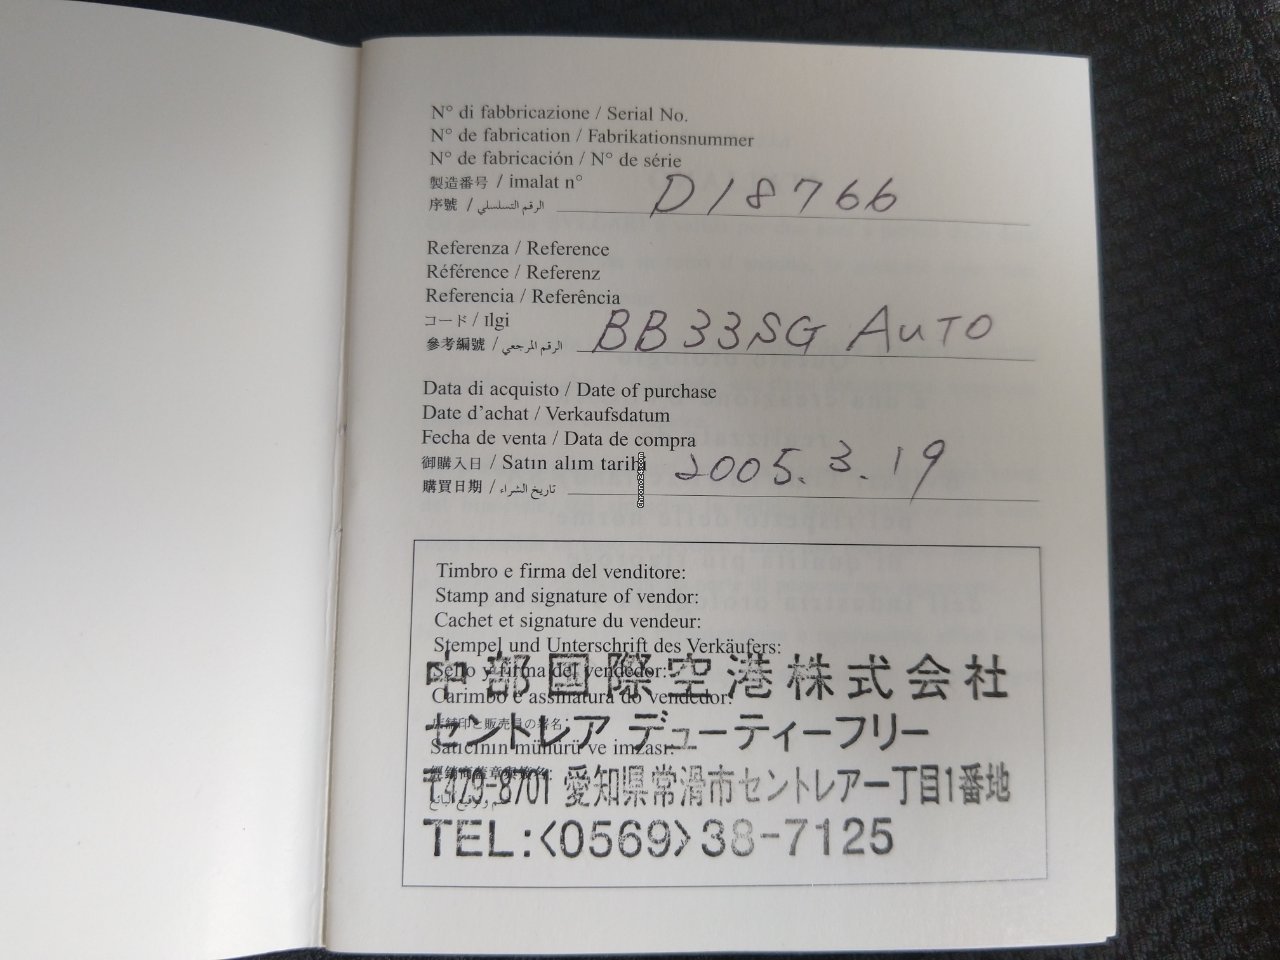 N° di fabbricazione / Serial No.
N° de fabrication / Fabrikationsnummer
N° de fabricación / N° de série
製造番号 / imalat n°
序號 / الرقم التسلسلي D18766
Referenza / Reference
Référence / Referenz
Referencia / Referência
コード / Ilgi
參考編號 / الرقم المرجعي BB33SG AUTO
Data di acquisto / Date of purchase
Date d'achat / Verkaufsdatum
Fecha de venta / Data de compra
御購入日 / Satın alım tarihi
購買日期 / تاريخ الشراء 2005.3.19
Chrono24.com
Timbro e firma del venditore:
Stamp and signature of vendor:
Cachet et signature du vendeur:
Stempel und Unterschrift des Verkäufers:
Sello y firma del vendedor:
中部国際空港株式会社
Carimbo e assinatura do vendedor:
店舗印と販売員の署名:
セントレア デューティーフリー
Satıcının mühürü ve imzası:
〒479-8701 愛知県常滑市セントレアー丁目1番地
TEL:<0569>38-7125